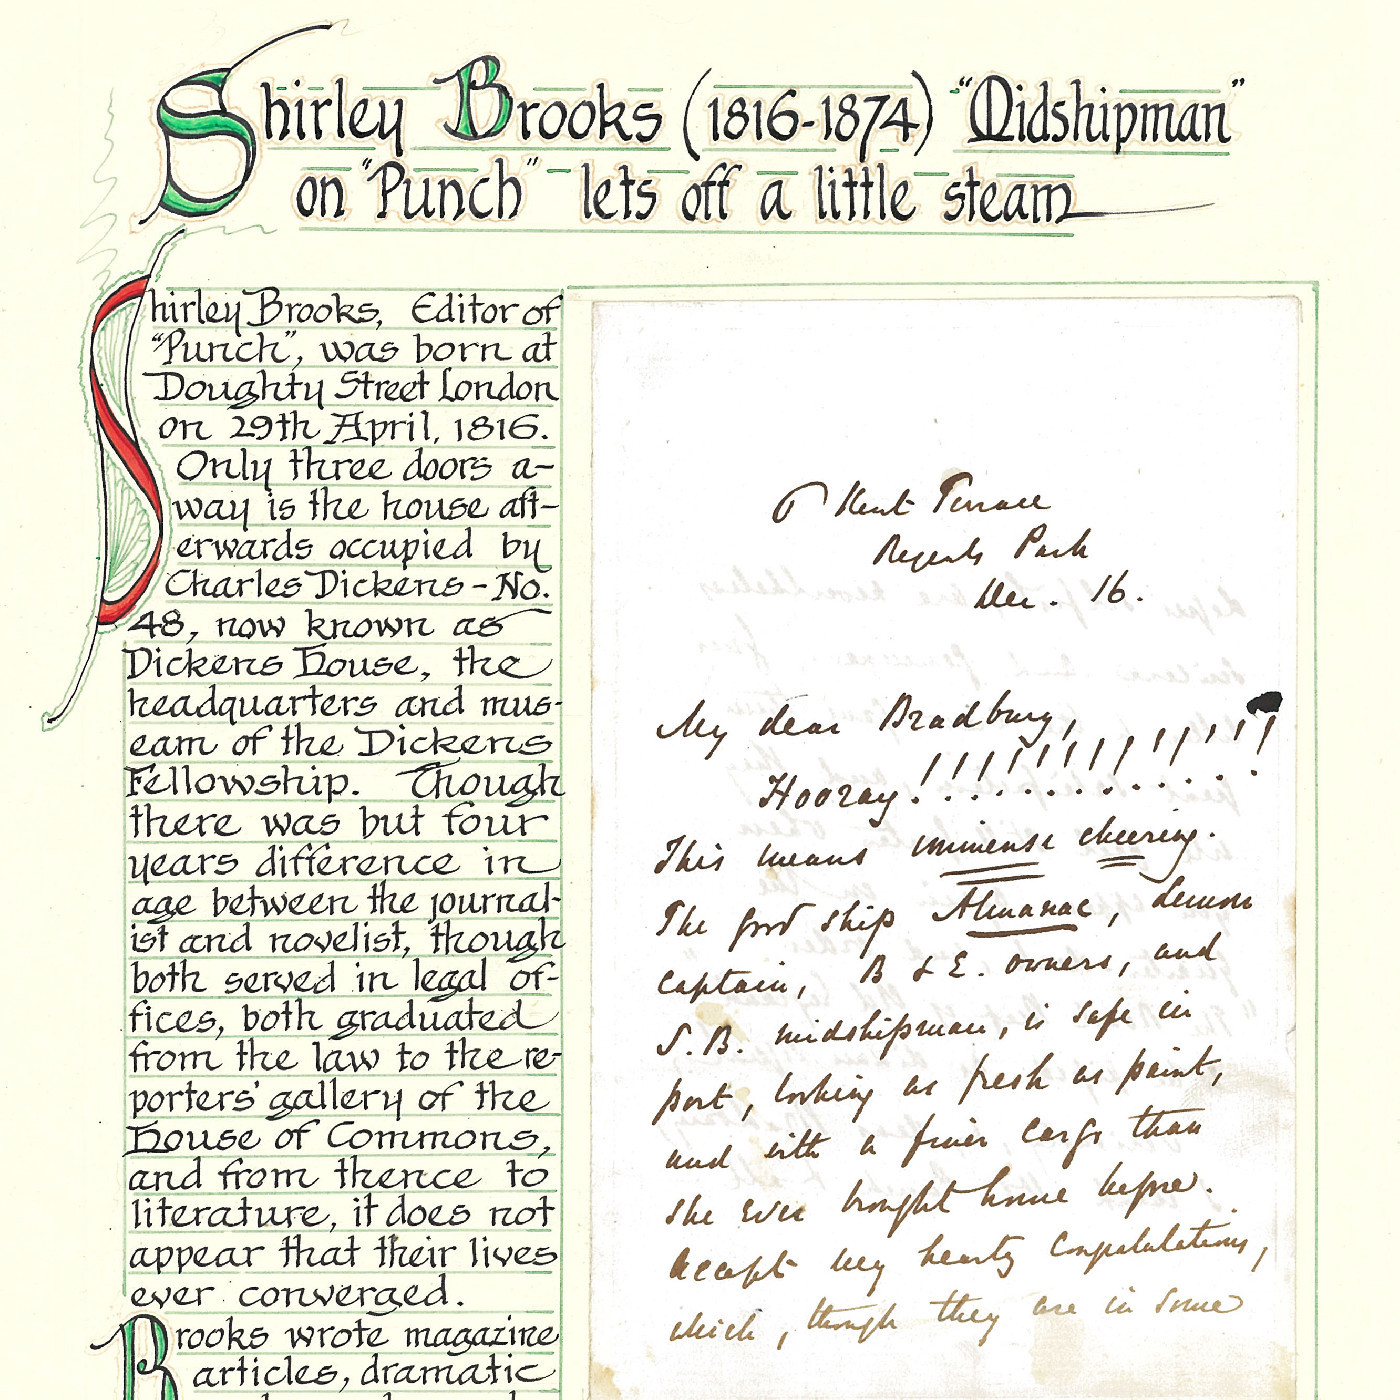 Shirley Brooks (1816-1874) "Midshipman"
on "Punch" lets off a little steam
Shirley Brooks, Editor of
"Punch", was born at
Doughty Street London
on 29th April, 1816.
Only three doors a-
way is the house aft-
erwards occupied by
Charles Dickens - No.
48, now known as
Dickens House, the
headquarters and mus-
eam of the Dickens
Fellowship. Though
there was but four
years difference in
age between the journal-
ist and novelist, though
both served in legal of-
fices, both graduated
from the law to the re-
porters' gallery of the
House of Commons,
and from thence to
literature, it does not
appear that their lives
ever converged.
Brooks wrote magazine
articles, dramatic
6 Kent Terrace
Regents Park
Dec. 16.
My dear Bradbury,
Hooray!!!!!!!!!!!!!!
This means immense cheering.
The good ship Almanac, Lemon
captain, B & E. owners, and
S.B. midshipman, is safe in
port, looking as fresh as paint,
and with a finer cargo than
she ever brought home before.
Accept my hearty congratulations,
which, though they are in some